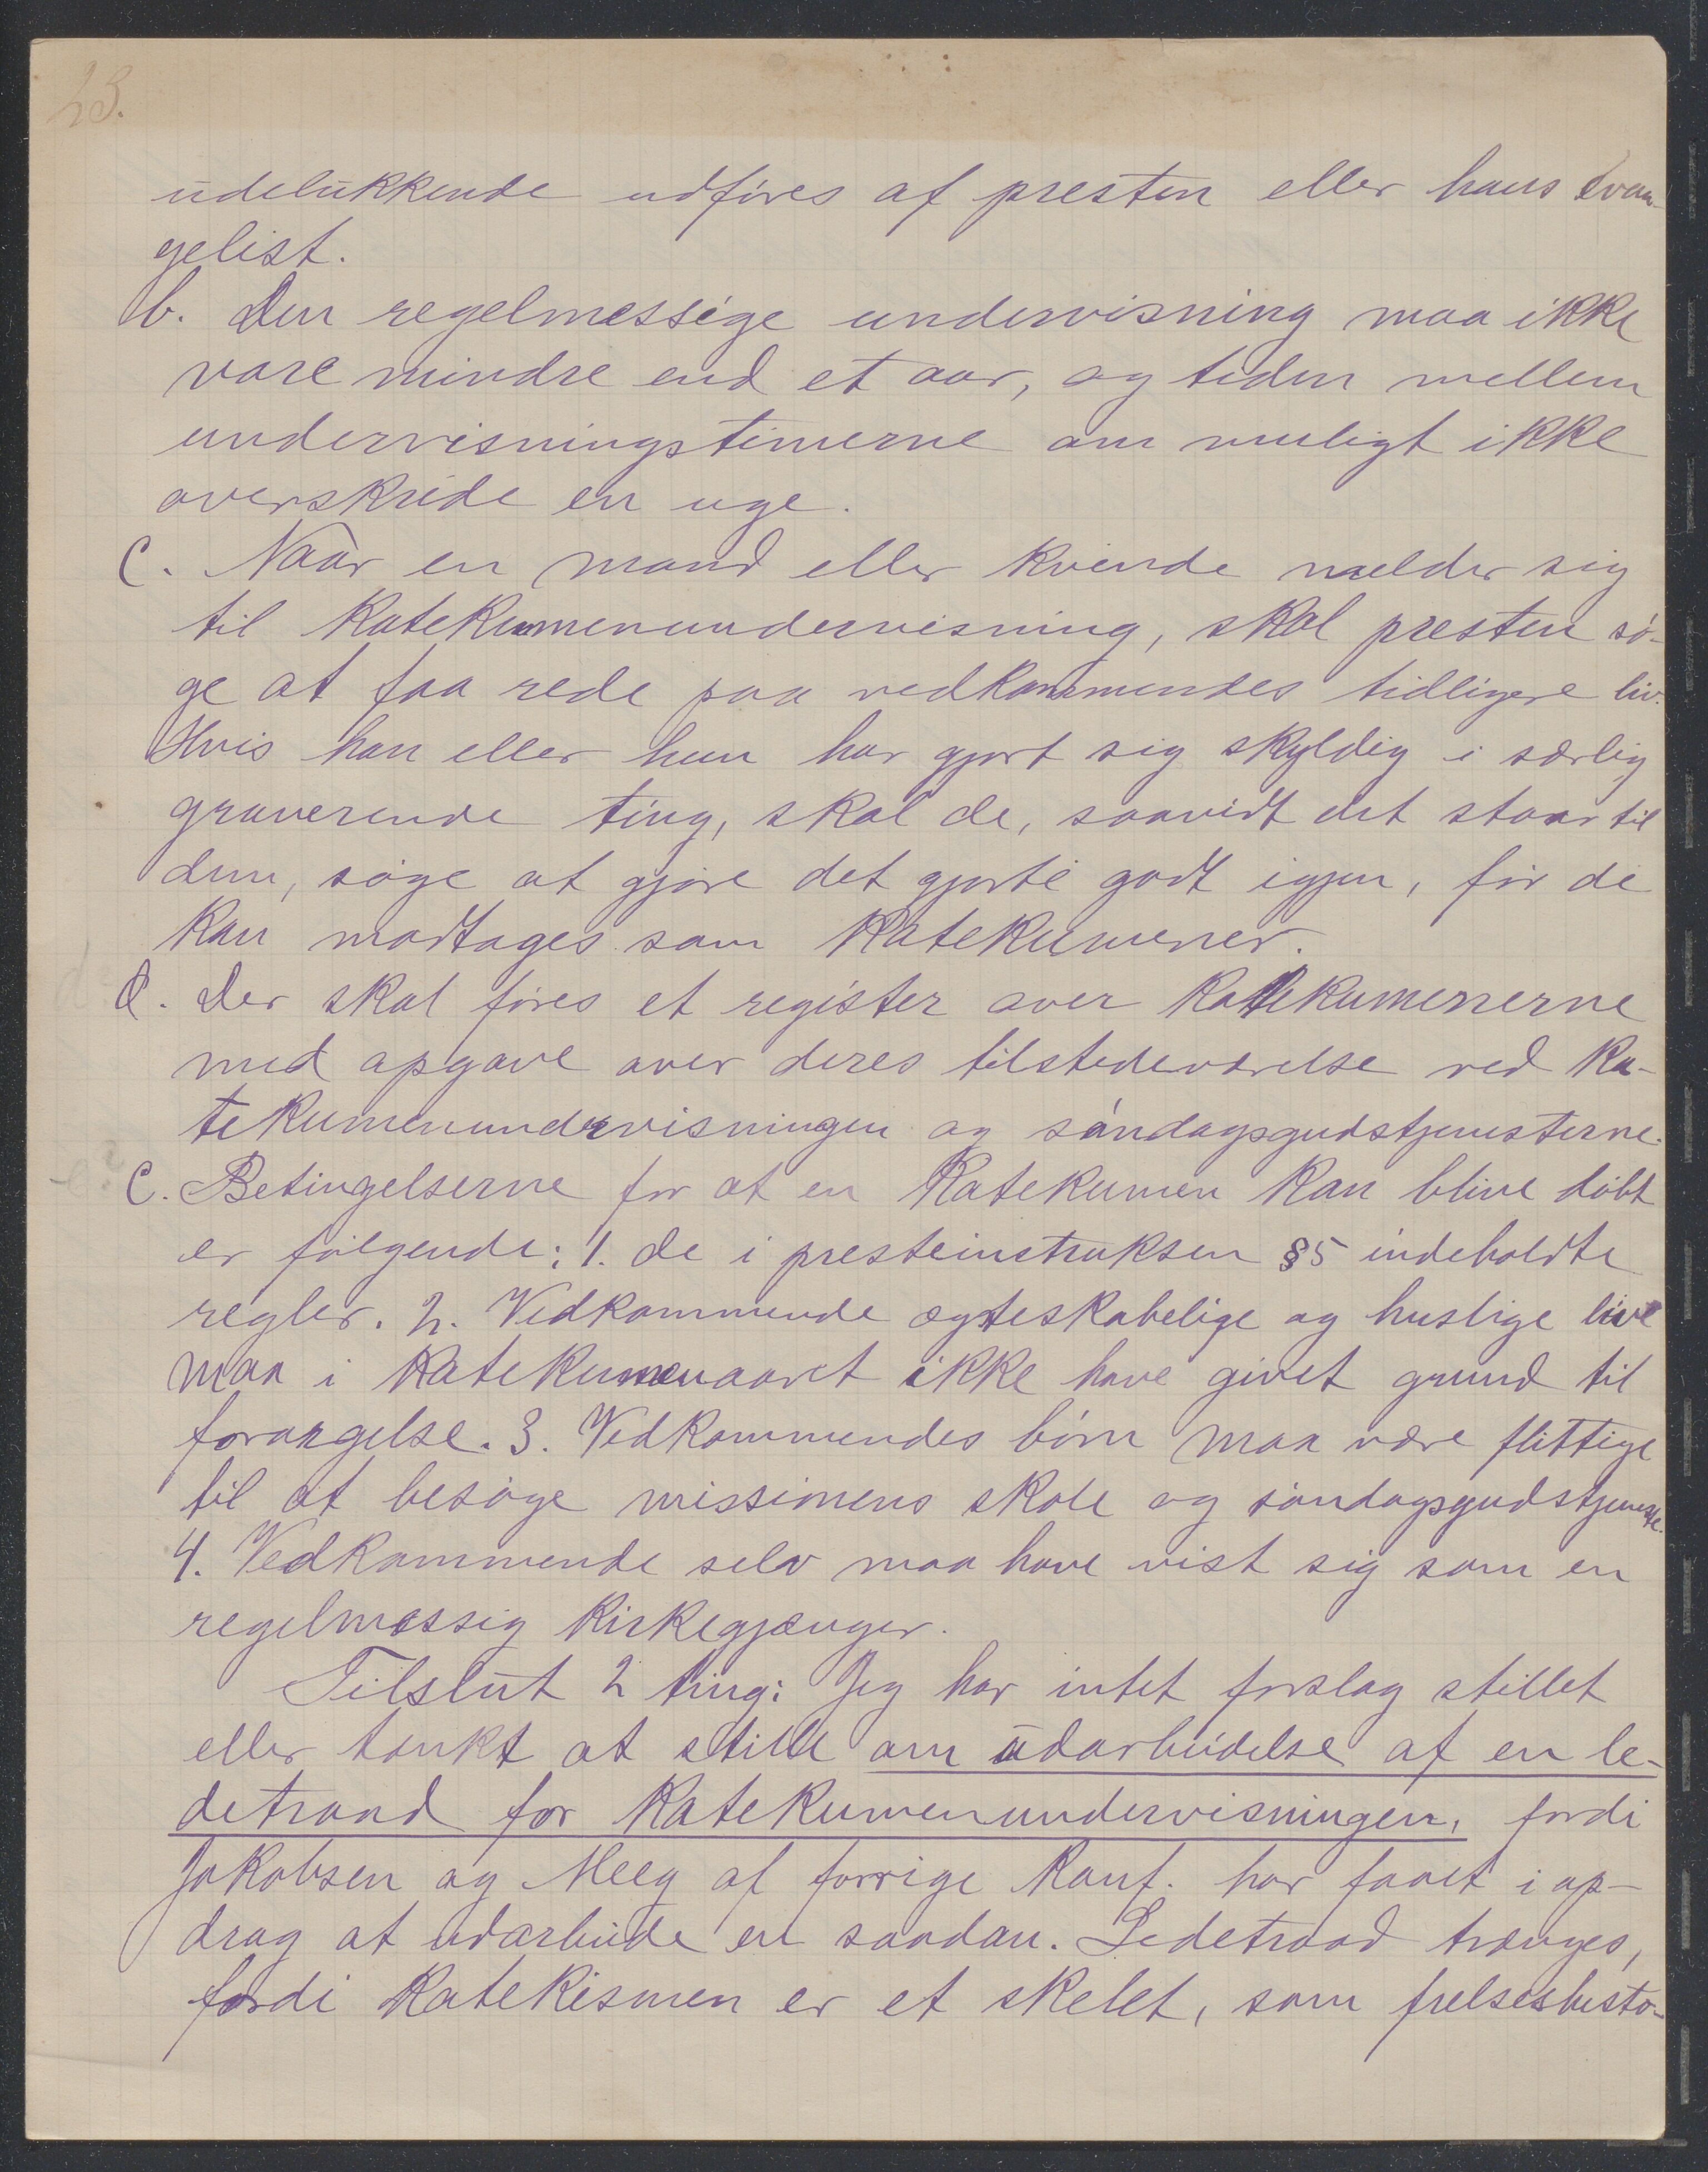 23.
udelukkende udføres af presten eller hans evan-
gelist.
b. Den regelmessige undervisning maa ikke
vare mindre end et aar, og tiden mellem
undervisningstimerne om muligt ikke
overskride en uge.
c. Naar en mand eller kvinde melder sig
til katekumenundervisning, skal presten sø-
ge at faa rede paa vedkommendes tidligere liv.
Hvis han eller hun har gjort sig skyldig i særlig
graverende ting, skal de, saavidt det staar til
dem, søge at gjøre det gjorte godt igjen, før de
kan modtages som katekumener.
d. Der skal føres et register over katekumenerne
med opgave over deres tilstedeværelse ved ka-
tekumenundervisningen og søndagsgudstjenesterne.
e. Betingelserne for at en katekumen kan blive døbt
er følgende: 1. de i presteinstruksen §5 indeholdte
regler. 2. Vedkommende ægteskabelige og huslige live
maa i katekumenaaret ikke have givet grund til
forargelse. 3. Vedkommendes børn maa være flittige
til at besøge missionens skole og søndagsgudstjeneste.
4. Vedkommende selv maa have vist sig som en
regelmæssig kirkegjænger.
Tilslut 2 ting: Jeg har intet forslag stillet
eller tænkt at stille om udarbeidelse af en le-
detraad for katekumenundervisningen, fordi
Jakobsen og Meeg af forrige konf. har faaet i op-
drag at udarbeide en saadan. Ledetraad trænges,
fordi katekismen er et skelet, som frelseshisto-